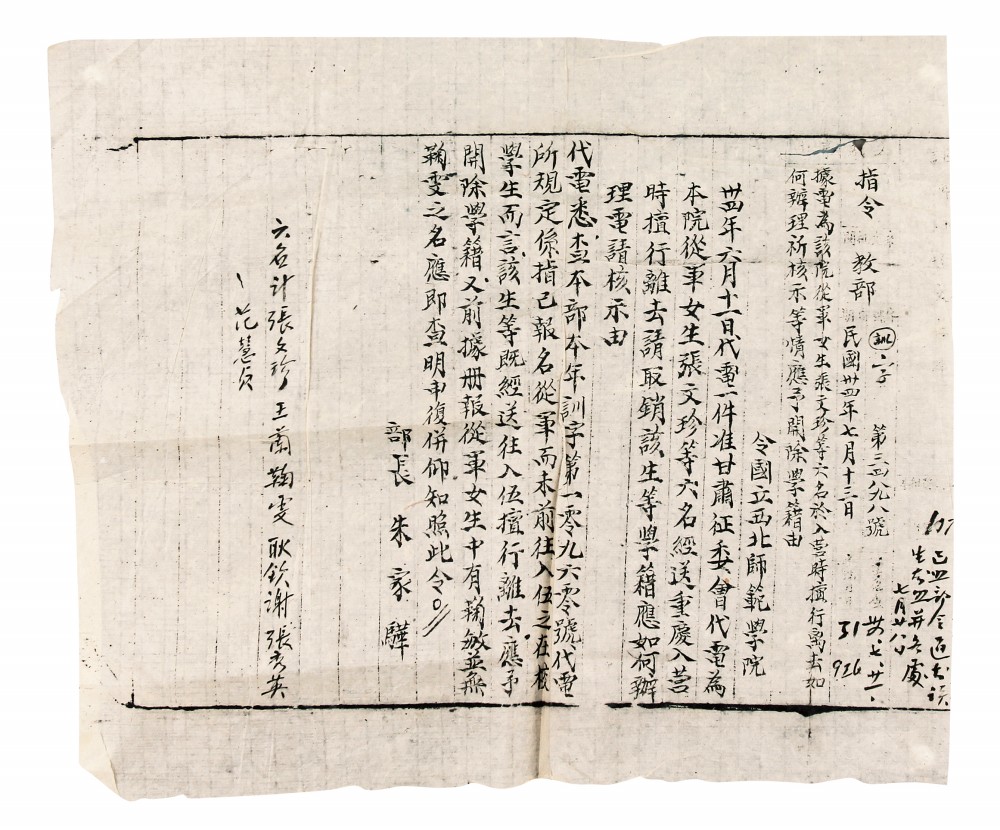 指令 教部
訓 字 第三四八九八號
民國卅四年七月十三日
據電為該院從軍女生張文珍等六名於入营時擅行离去如
何辦理祈核示等情應予開除學籍由
令國立西北師範學院
卅四年六月十一日代電一件准甘肅征委會代電為
本院從軍女生張文珍等六名經送重慶入营
時擅行離去請取銷該生等學籍應如何辦
理電請核示由
代電悉查本部本年訓字第一零九六零號代電
所規定係指已報名從軍而未前往入伍之在校
學生而言該生等既經送往入伍擅行離去應予
開除學籍又前據册報從軍女生中有鞠敏並無
鞠雯之名應即查明申復併仰知照此令
部長 朱家驊
六名計張文珍 王蘭 鞠雯 耿欽謝 張秀英
范慧貞
卅、七、廿一、
31
926
七月廿八